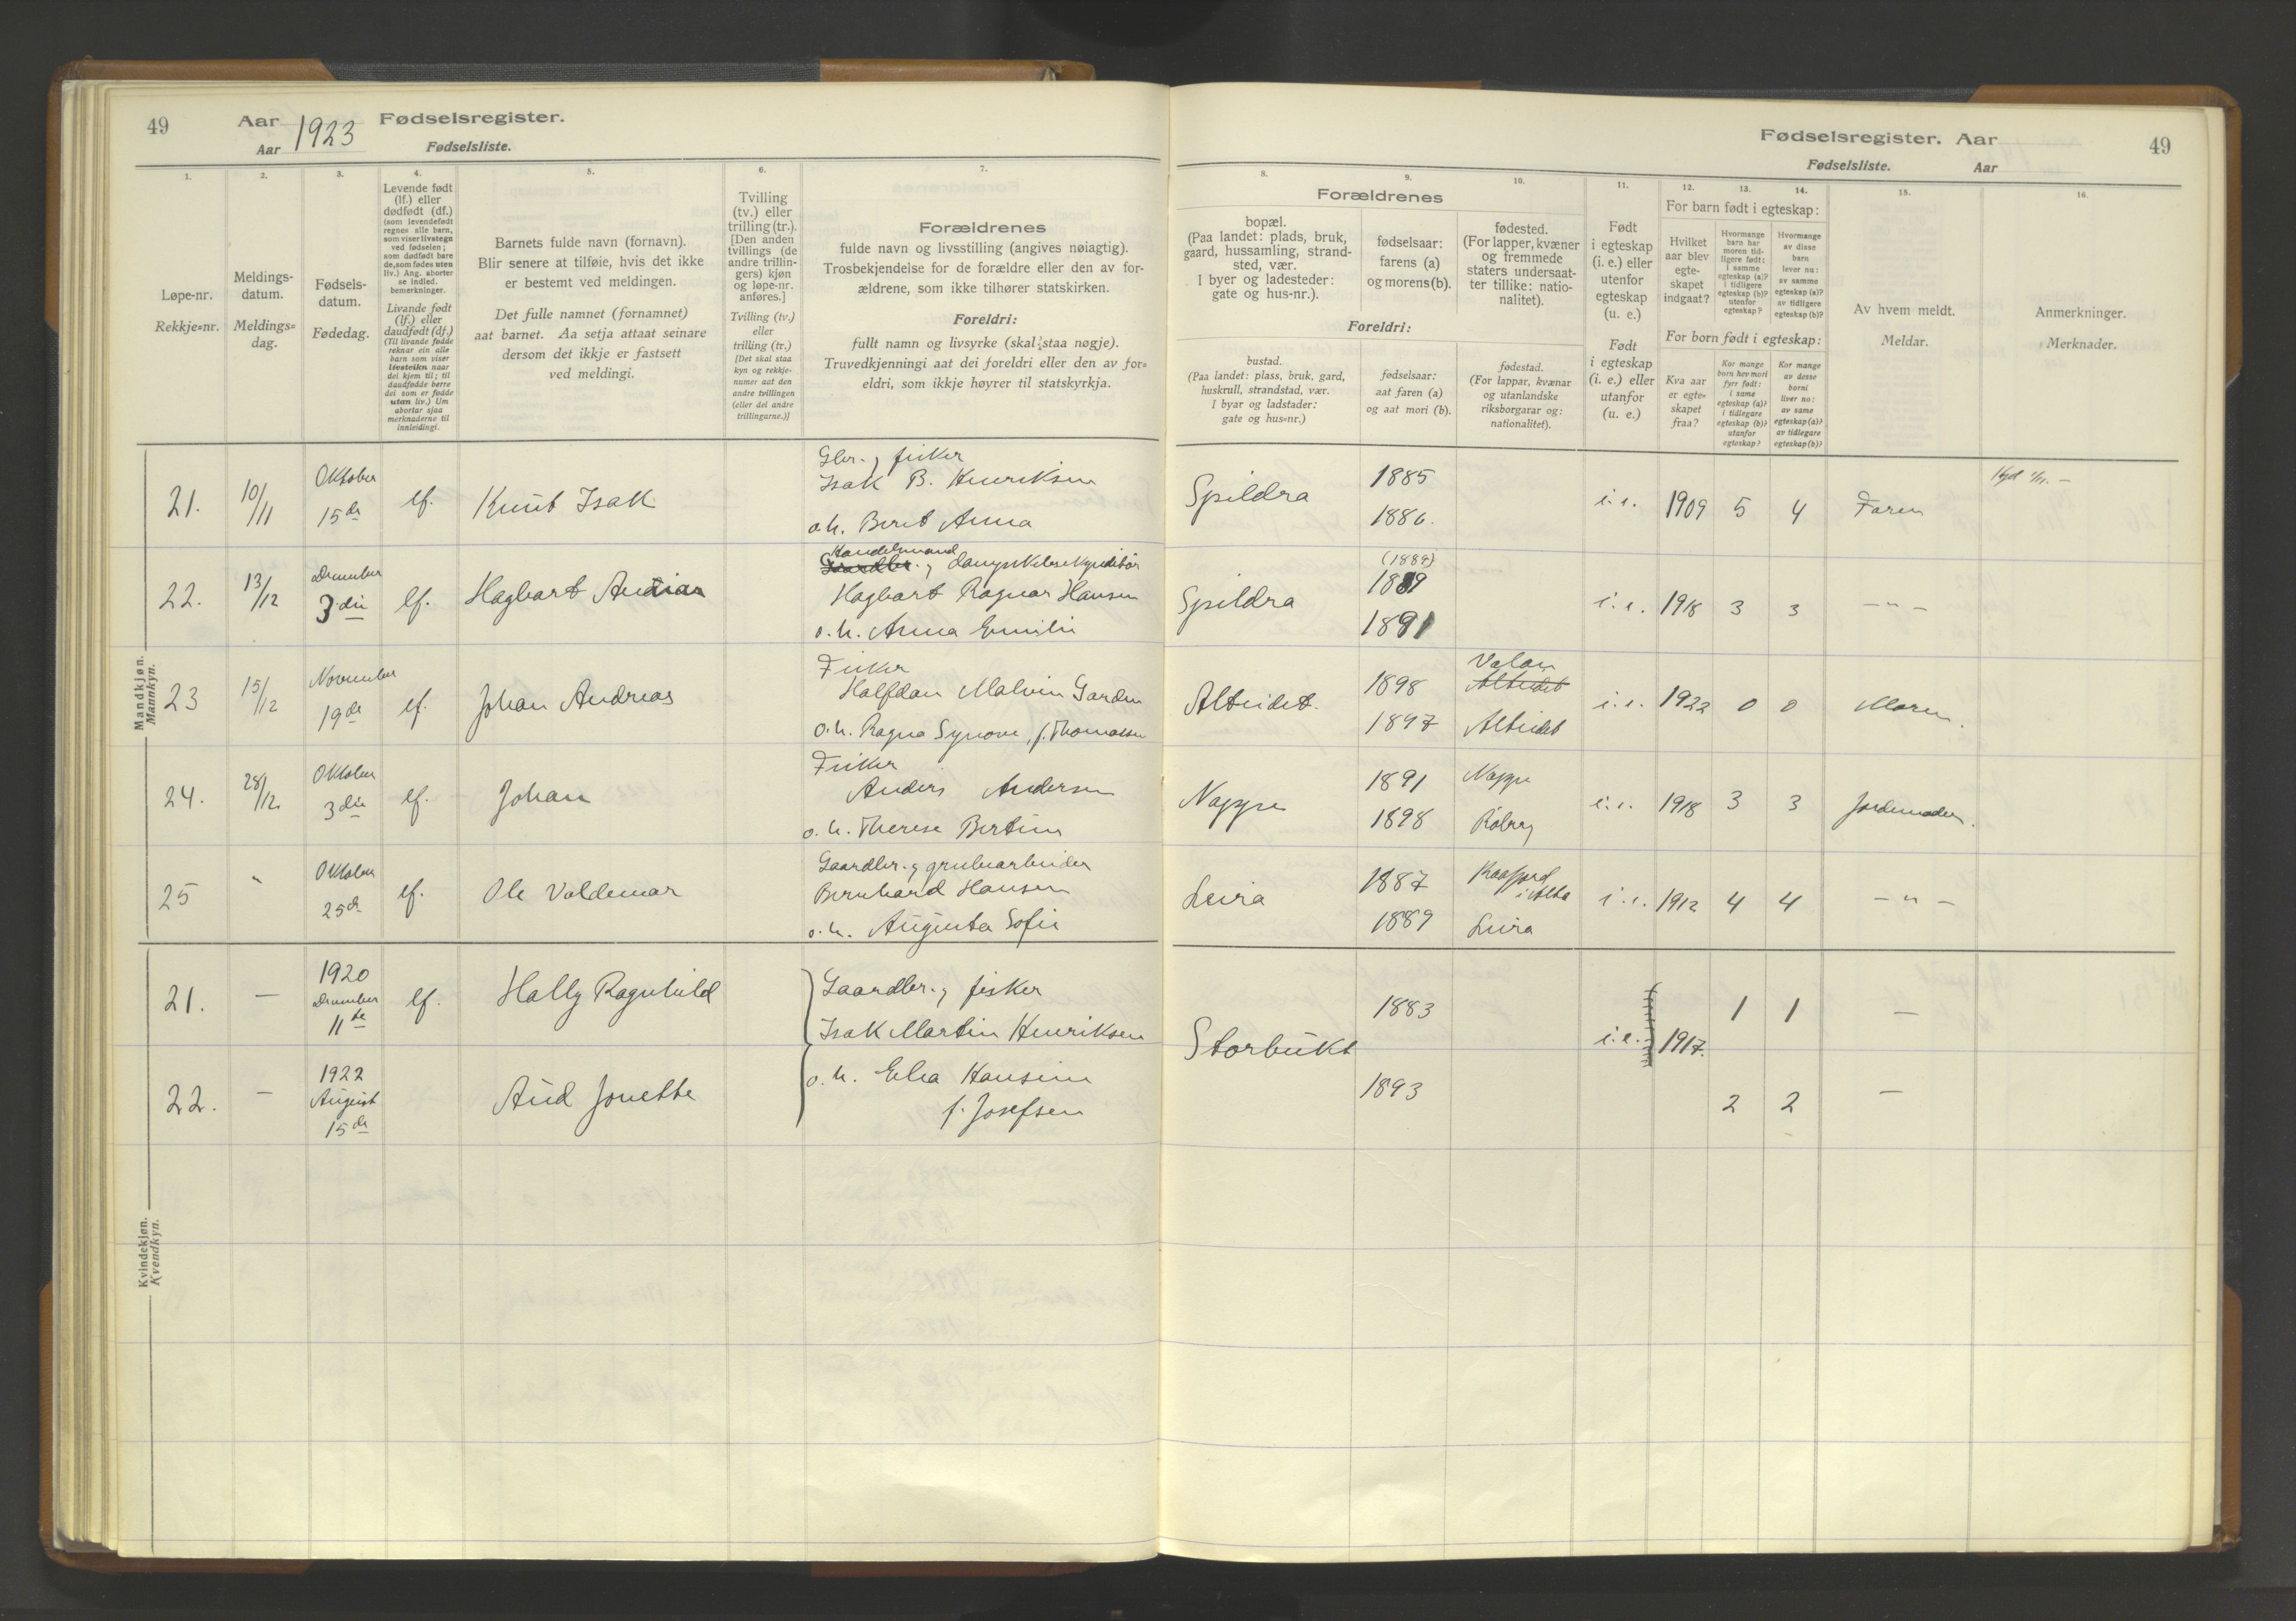 49
Aar 1923 Fødselsregister.
Aar Fødselsliste.
1. 2. 3. 4. 5. 6. 7.
Løpe-nr.
Rekkje=nr.
Meldings-
datum.
Meldings=
dag.
Fødsels-
datum.
Fødedag.
Levende født
(lf.) eller
dødfødt (df.)
(som levendefødt
regnes alle barn,
som viser livstegn
ved fødselen;
som dødfødt bare
de, som fødes uten
liv.) Ang. aborter
se indled.
bemerkninger.
Livande født
(lf.) eller
daudfødt (df.)
(Til livande fødde
reknar ein alle
barn som viser
livsteikn naar
dei kjem til; til
daudfødde berre
dei som er fødde
utan liv.) Um
abortar sjaa
merknaderne til
innleidingi.
Barnets fulde navn (fornavn).
Blir senere at tilføie, hvis det ikke
er bestemt ved meldingen.
Det fulle namnet (fornamnet)
aat barnet. Aa setja attaat seinare
dersom det ikkje er fastsett
ved meldingi.
Tvilling
(tv.) eller
trilling (tr.).
[Den anden
tvillings (de
andre trillin-
gers) kjøn
og løpe-nr.
anføres.]
Tvilling (tv.)
eller
trilling (tr.)
[Det skal staa
kyn og rekkje-
numer aat den
andre tvillingen
(eller dei andre
trillingarne.)]
Forældrenes
fulde navn og livsstilling (angives nøiagtig).
Trosbekjendelse for de forældre eller den av for-
ældrene, som ikke tilhører statskirken.
Foreldri:
fullt namn og livsyrke (skal staa nøgje).
Truvedkjenningi aat dei foreldri eller den av for=
eldri, som ikkje høyrer til statskyrkja.
Mandkjøn.
Mannkyn.
21. 10/11 Oktober 15de lf. Knut Isak
Gbr. og fisker
Isak B. Henriksen
o. h. Berit Anna
22. 13/12 December 3die lf. Hagbart
Handelsmand
Gaardbr. og
Hagbart Ragnar Hansen
o. h. Anna Emilie
23 15/12 November 19de lf. Johan Andreas
Fisker
Halfdan Malvin Garden
o. h. Ragna Synøve, f. Thomassen
24. 28/12 Oktober 3die lf. Johan
Fisker
Anders Andersen
o. h. Therese Bertine
25 " Oktober 25de lf. Ole Valdemar
Gaardbr. og grubearbeider
Bernhard Hansen
o. h. Augusta Sofie
Kvindekjøn.
Kvendkyn.
21. — 1920 December 11te lf. Hally Ragnhild
Gaardbr. og fisker
Isak Martin Henriksen
22. — 1922 August 15de Aud Jonette
o. h. Elea Hansine
f. Josefsen
Fødselsregister. Aar
Fødselsliste. Aar
49
8. 9. 10. 11. 12. 13. 14. 15. 16.
Forældrenes
bopæl.
(Paa landet: plads, bruk,
gaard, hussamling, strand-
sted, vær.
I byer og ladesteder:
gate og hus-nr.).
fødselsaar:
farens (a)
og morens (b).
fødested.
(For lapper, kvæner
og fremmede
staters undersaat-
ter tillike: natio-
nalitet).
Foreldri:
bustad.
(Paa landet: plass, bruk, gard,
huskrull, strandstad, vær.
I byar og ladstader:
gate og hus=nr.)
fødselsaar:
aat faren (a)
og aat mori (b).
fødestad.
(For lappar, kvænar
og utanlandske
riksborgarar og:
nationalitet).
Født
i egteskap
(i. e.) eller
utenfor
egteskap
(u. e.)
Født
i egteskap
(i. e.) eller
utanfor
(u. e.)
For barn født i egteskap:
Hvilket
aar blev
egte-
skapet
indgaat?
Hvormange
barn har
moren tid-
ligere født:
i samme
egteskap (a)?
i tidligere
egteskap (b)?
utenfor
egteskap?
Hvormange
av disse
barn
lever nu:
av samme
egteskap (a)?
av tidligere
egteskap (b)?
For born født i egteskap:
Kva aar
er egte=
skapet
fraa?
Kor mange
born hev mori
fyrr født:
i same
egteskap (a)?
i tidlegare
egteskap (b)?
utanfor
egteskap?
Kor mange
av desse
borni
liver no:
av same
egteskap (a)?
av tidlegare
egteskap (b)?
Av hvem meldt.
Meldar.
Anmerkninger.
Merknader.
Spildra 1885 1886. i. e. 1909 5 4 Faren
Spildra (1889) 1889 1891 i. e. 1918 3 3 — " —
Alteidet. 1898 Valan Alteidet 1897 Alteidet i. e. 1922 0 0 Moren.
Nappen 1891 Nappen 1898 i. e. 1918 3 3 Jordemoder.
Leira 1887 Kaafjord i Alta 1889 Leira i. e. 1912 4 4 — " —
Storbukt 1883 1893 i. e. 1917. 1 1 —
2 2 —